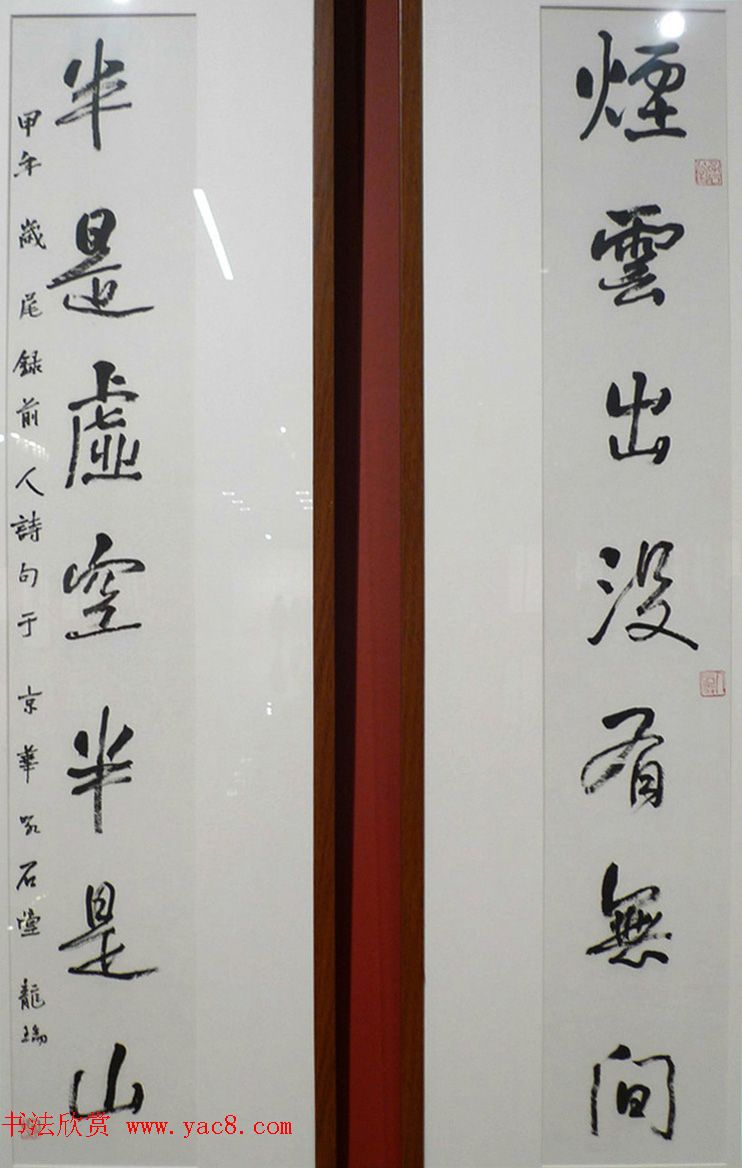 煙雲出没有無间
半是虛空半是山
甲午歲尾録前人詩句于京華以石堂龍瑞
书法欣赏 www.yac8.com